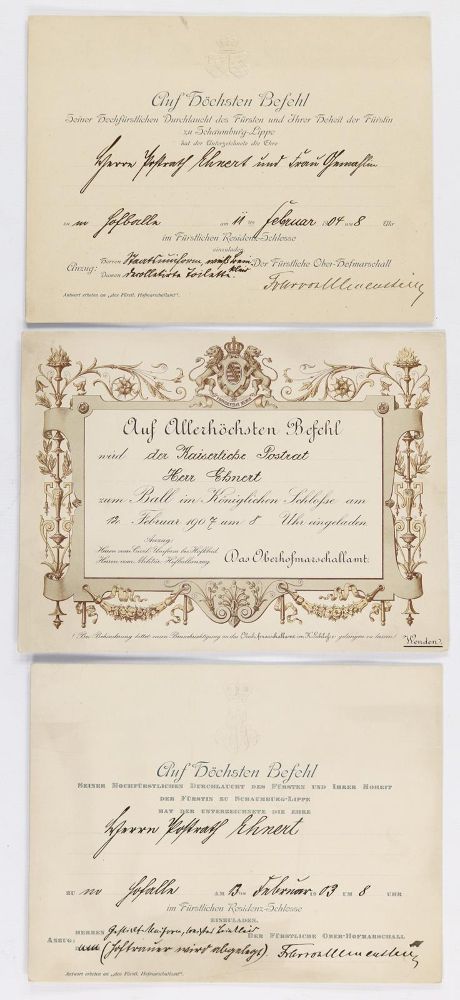 Auf Höchsten Befehl
Seiner Hochfürstlichen Durchlaucht des Fürsten und Ihrer Hoheit der Fürstin
zu Schaumburg-Lippe
hat der Unterzeichnete die Ehre
Herrn Postrath Ehnert und Frau Gemahlin
zu m Hofballe am 11 ten Februar 1904 um 8 Uhr
im Fürstlichen Residenz-Schlosse
einzuladen.
Anzug: Herren Staatsuniform,
Damen decolletirte Toilette
Der Fürstliche Ober-Hofmarschall
Antwort erbeten an „das Fürstl. Hofmarschallamt".
Auf Allerhöchsten Befehl
wird der Kaiserliche Postrat
Herr Ehnert
zum Ball im Königlichen Schlosse am
12. Februar 1907 um 8 Uhr eingeladen.
Anzug:
Herren vom Civil: Uniform bez. Hofkleid.
Herren vom Militär: Hofballanzug.
Das Oberhofmarschallamt.
Bei Behinderung bittet man Benachrichtigung an das Oberhofmarschallamt im K. Schloss gelangen zu lassen.
Wenden.
Auf Höchsten Befehl
Seiner Hochfürstlichen Durchlaucht des Fürsten und Ihrer Hoheit
der Fürstin zu Schaumburg-Lippe
hat der Unterzeichnete die Ehre
Herrn Postrath Ehnert
zu m Hofballe am 12 ten Februar 1903 um 8 Uhr
im Fürstlichen Residenz-Schlosse
einzuladen.
Anzug: Herren
(Hoftrauer wird abgelegt)
Der Fürstliche Ober-Hofmarschall
Antwort erbeten an „das Fürstl. Hofmarschallamt".